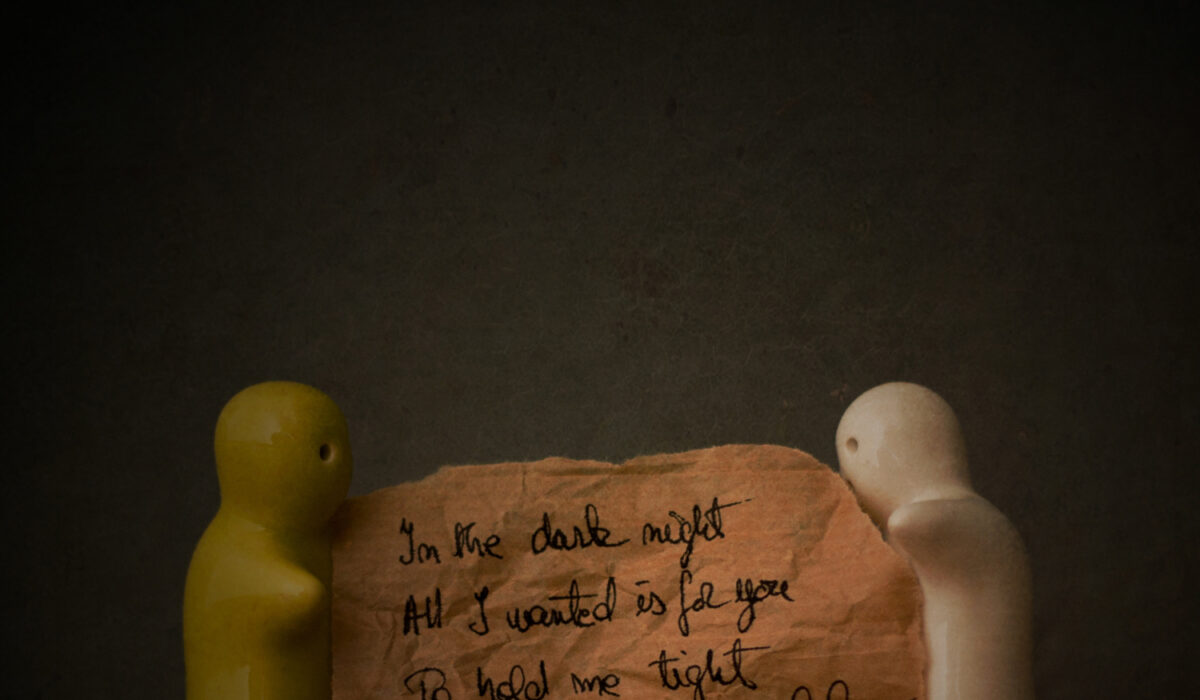 In the dark night
All I wanted is for you
To hold me tight